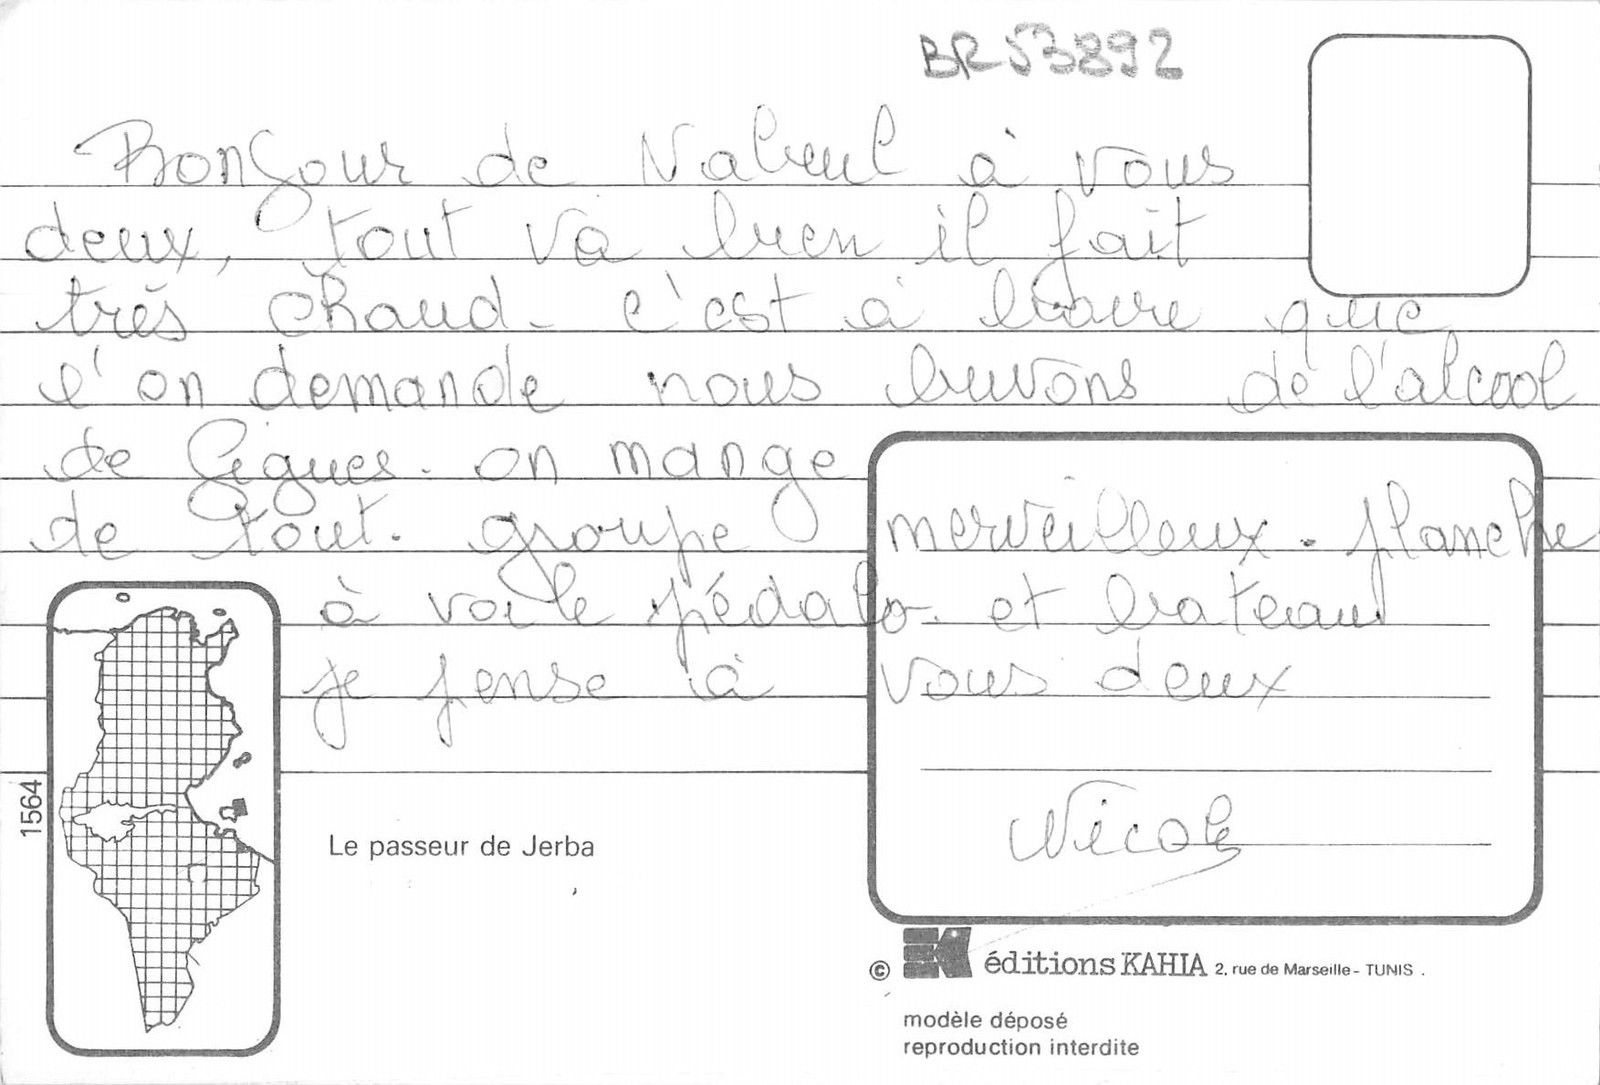 BR53892
Bonjour de Nabeul à vous
deux, tout va bien il fait
très chaud - c'est à boire que
l'on demande nous buvons de l'alcool
de figues. on mange
de tout. groupe merveilleux. planche
à voile pédalo. et bateau
je pense à vous deux
Nicole
1564
Le passeur de Jerba
© éditions KAHIA 2, rue de Marseille - TUNIS .
modèle déposé
reproduction interdite